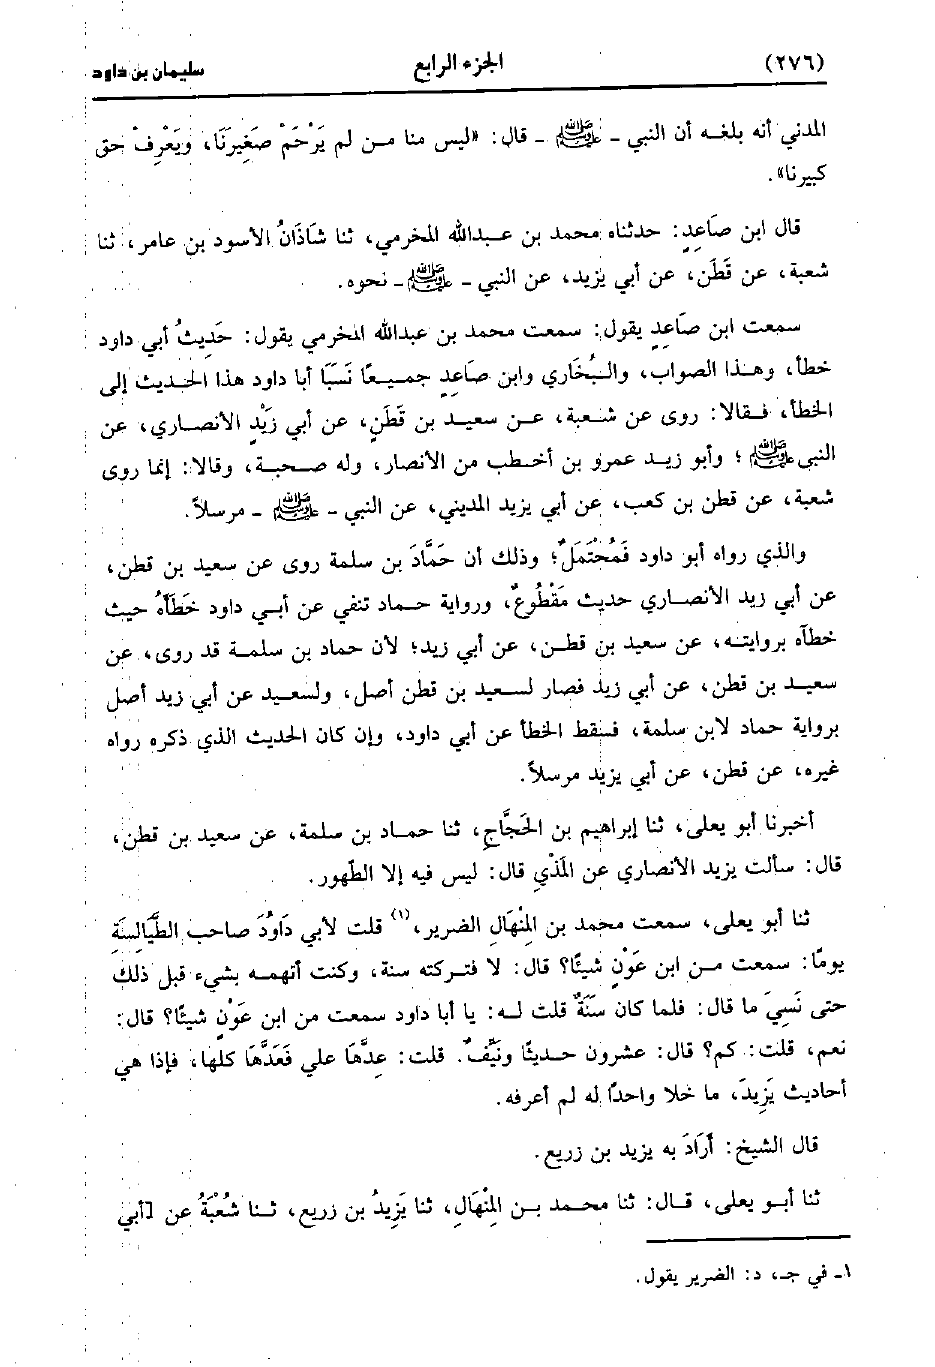 (٢٧٦) الجزء الرابع سليمان بن داود
المدني أنه بلغه أن النبي - ﷺ - قال: «ليس منا مـن لم يَرْحَمْ صَغِيرَنَا، ويَعْرِفْ حق
كبيرنا».
قال ابن صَاعِدٍ: حدثناه محمد بن عبدالله المخرمي، ثنا شَاذَانُ الأسود بن عامر، ثنا
شعبة، عن قَطَن، عن أبي يزيد، عن النبي - ﷺ - نحوه.
سمعت ابن صَاعِدٍ يقول: سمعت محمد بن عبدالله المخرمي يقول: حَدِيثُ أبي داود
خطأ، وهـذا الصواب، والبُخَاري وابن صَاعِدٍ جميعًا نَسَبَا أبا داود هذا الحديث إلى
الخطأ، فـقالا: روى عن شعبة، عـن سعيـد بن قَطَنٍ، عن أبي زَيْدٍ الأنصـاري، عن
النبي ﷺ ؛ وأبو زيـد عمرو بن أخـطب من الأنصار، وله صـحبـة، وقالا: إنما روى
شعبة، عن قطن بن كعب، عن أبي يزيد المديني، عن النبي - ﷺ - مرسلاً.
والذي رواه أبو داود فَمُحْتَمَلٌ؛ وذلك أن حَمَّادَ بن سلمة روى عن سعيد بن قطن،
عن أبي زيد الأنصـاري حديث مَقْطُوعٌ، ورواية حـماد تنفي عن أبـي داود خَطَأَهُ حيث
خطأه بروايتـه، عن سعيد بن قطـن، عن أبي زيد؛ لأن حماد بن سلمـة قد روى، عن
سعيـد بن قطن، عن أبي زيد فصار لسعيد بن قطن أصل، ولسعيـد عن أبي زيد أصل
برواية حماد لابن سلمة، فسقط الخطأ عن أبي داود، وإن كان الحديث الذي ذكره رواه
غيره، عن قطن، عن أبي يزيد مرسلاً.
أخبرنا أبو يعلى، ثنا إبراهيم بن الحَجَّاج، ثنا حمـاد بن سلمة، عن سعيد بن قطن،
قال: سألت يزيد الأنصاري عن المَذْي قال: ليس فيه إلا الطّهور.
ثنا أبو يعلى، سمعت محمد بن المِنْهَالِ الضرير،(١) قلت لأبي دَاوُدَ صاحب الطَّيالسَة
يومًا: سمعت مـن ابن عَوْنٍ شيئًا؟ قال: لا فتـركته سنة، وكنت أتهمـه بشيء قبل ذلك
حتى نَسِيَ ما قال: فلما كان سَنَةٌ قلت لـه: يا أبا داود سمعت من ابن عَوْنٍ شيئًا؟ قال:
نعم، قلت: كم؟ قال: عشرون حديثًا ونَيِّفٌ. قلت: عدَّهَا علي فَعَدَّهَا كلها، فإذا هي
أحاديث يَزِيدَ، ما خلا واحدًا له لم أعرفه.
قال الشيخ: أرَادَ به يزيد بن زريع.
ثنا أبـو يعلى، قـال: ثنا محمـد بـن المِنْهَالِ، ثنا يَزِيدُ بن زريع، ثـنا شُعْبَةُ عن [أبي
١- في جـ، د: الضرير يقول.